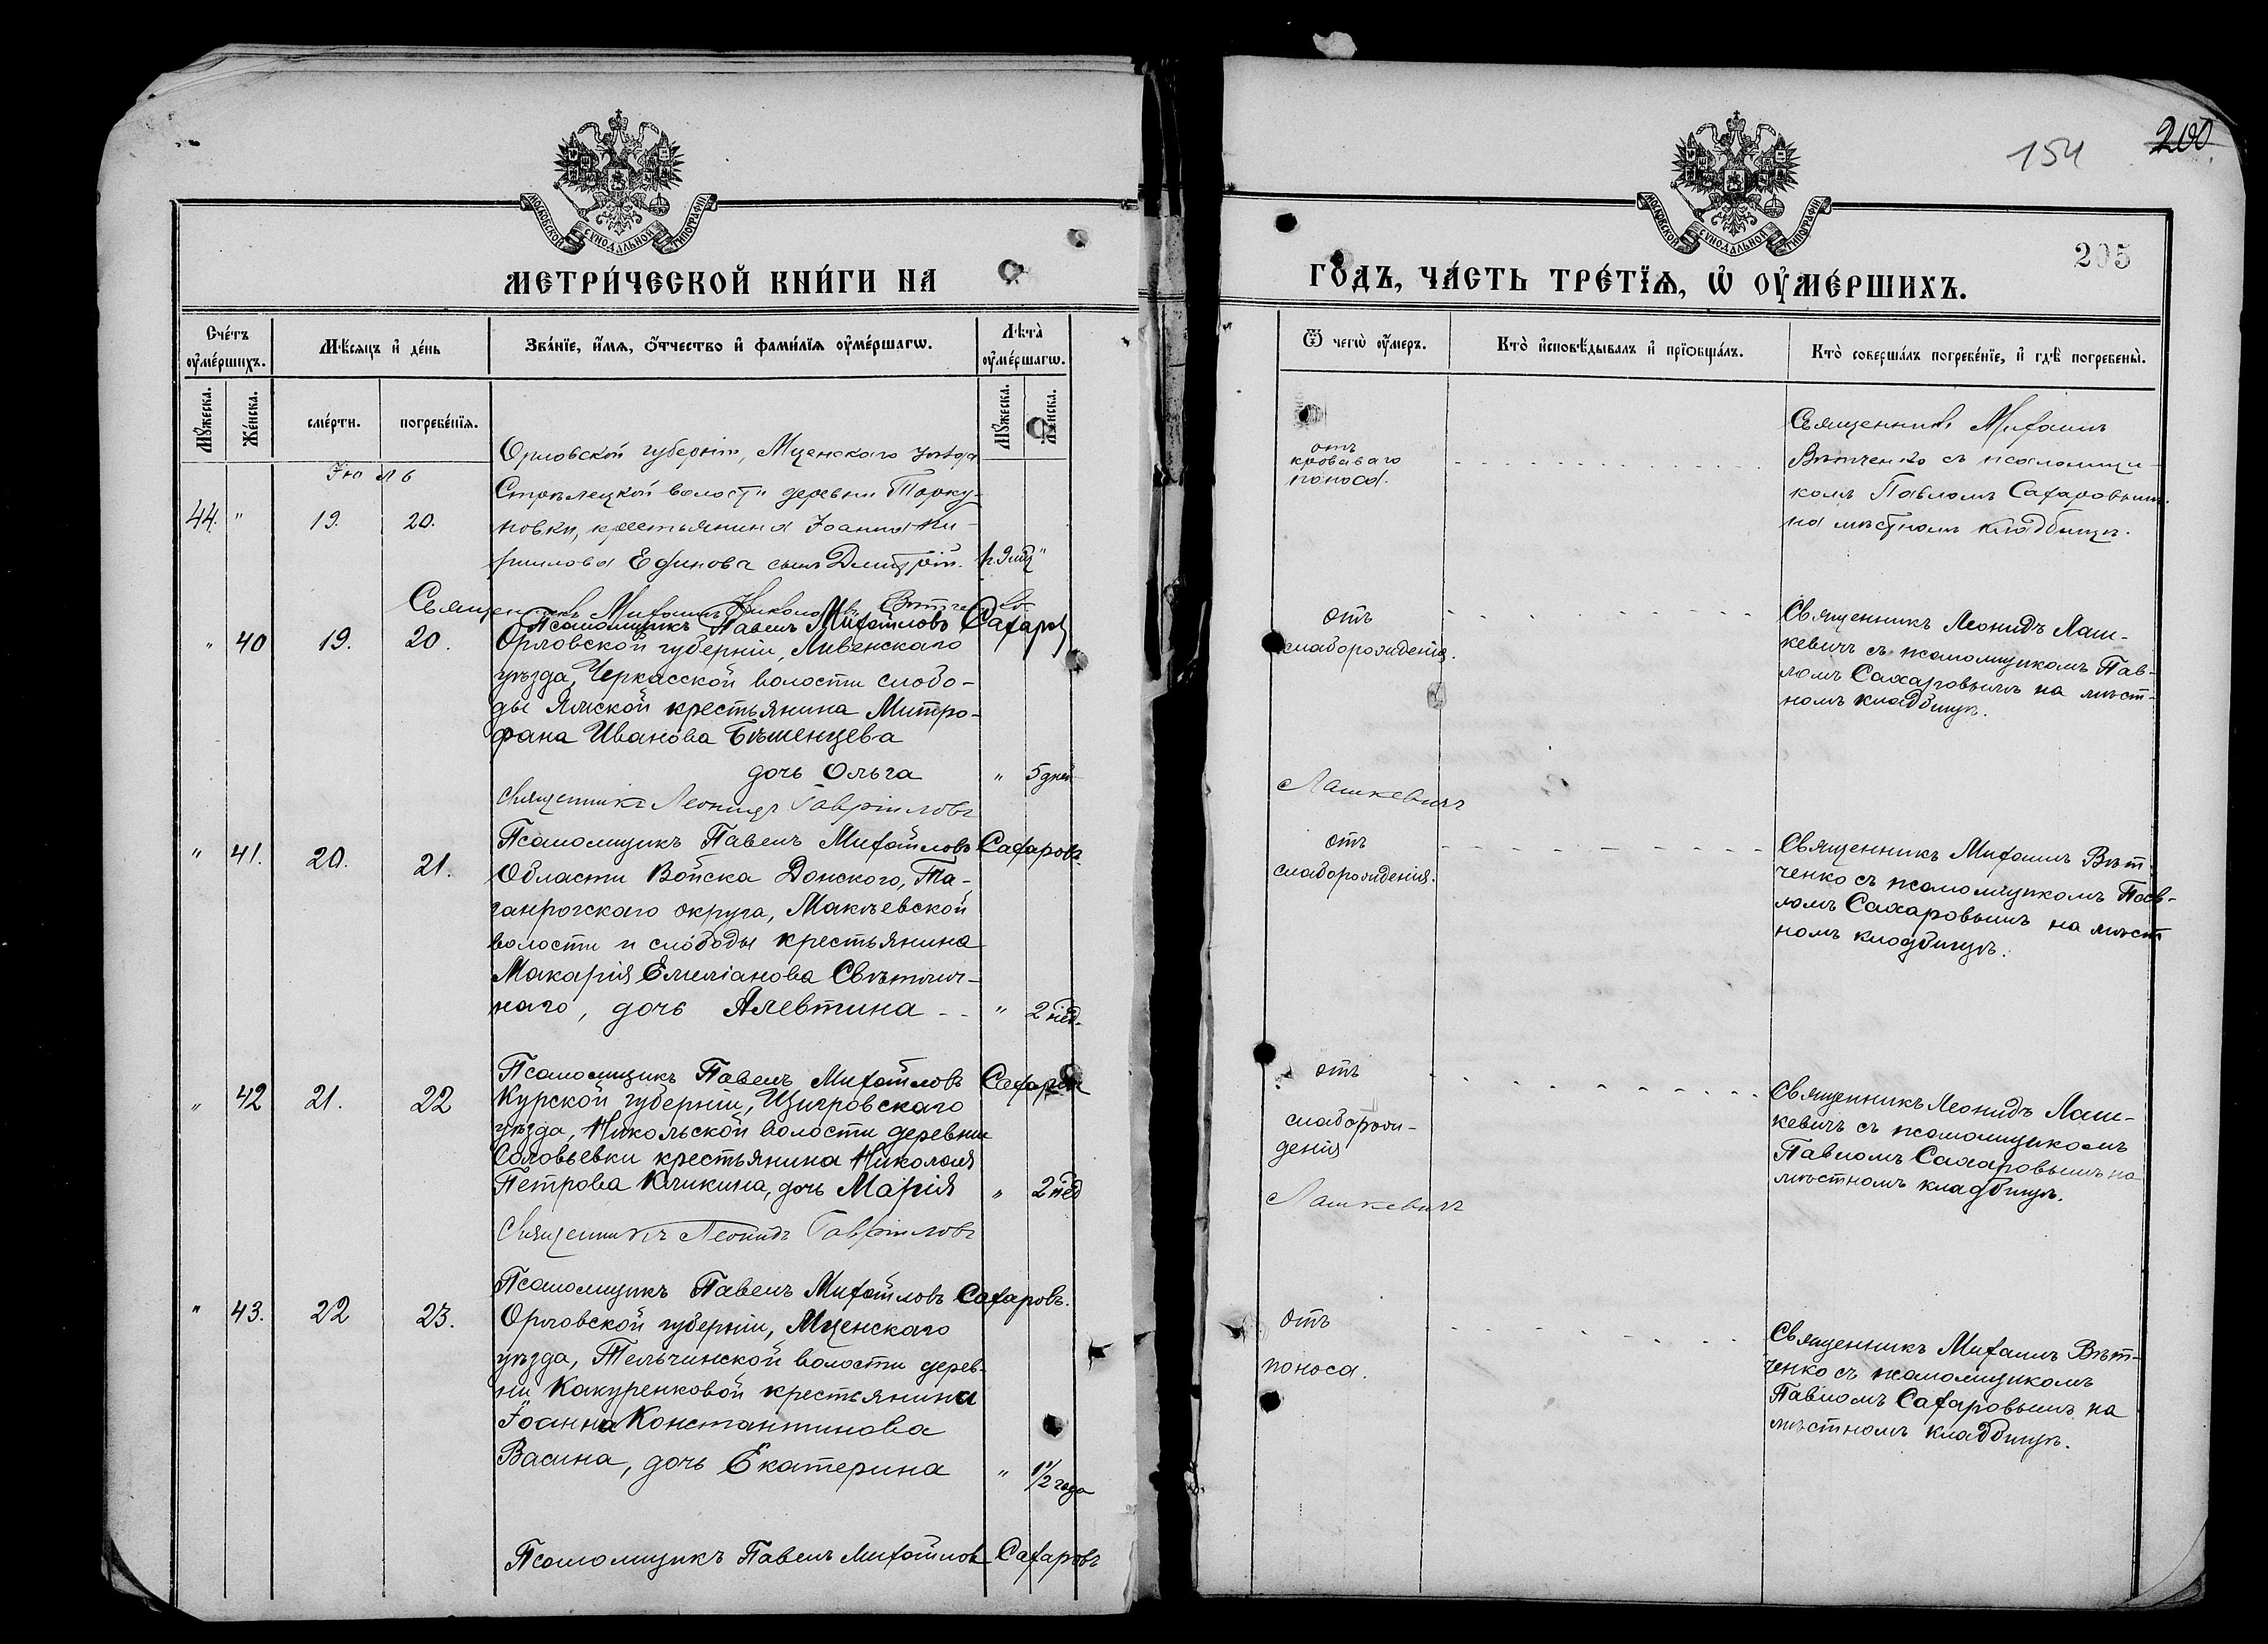 МОСКОВСКОЙ СѴНОДАЛЬНОЙ ТИПОГРАФІИ
МЕТРИ́ЧЕСКОЙ КНИ́ГИ НА
Сче́тъ ᲂу҆ме́ршихъ.
Мѣ́сяцъ и҆ де́нь
Зва́нїе, и҆́мя, ѻ҆́тчество и҆ фами́лїя ᲂу҆ме́ршагѡ.
Лѣта̀ ᲂу҆ме́ршагѡ.
Мꙋ́жеска.
Же́нска.
сме́рти.
погребе́нїя.
Мꙋ́жеска.
Же́нска.
Іюль
44. " 19. 20.
Орловской губерніи, Мценскаго уѣзда
Стрѣлецкой волости деревни Торку-
новки, крестьянина Іоанна Ки-
риллова Ефимова сынъ Дмитрій.
Священникъ Михаилъ Николаевъ Вѣтченко
Псаломщикъ Павелъ Михайловъ Сахаровъ
" 40 19. 20.
Орловской губерніи, Ливенскаго
уѣзда, Черкасской волости слобо-
ды Ямской крестьянина Митро-
фана Иванова Бѣшенцева
дочь Ольга " 5 дней
Священникъ Леонидъ Гавріиловъ
Псаломщикъ Павелъ Михайловъ Сахаровъ.
" 41. 20. 21.
Области Войска Донского, Та-
ганрогскаго округа, Макѣевской
волости и слободы крестьянина
Макарія Емеліанова Свѣтлич-
наго, дочь Алевтина - - " 2 нед.
Псаломщикъ Павелъ Михайловъ Сахаровъ
" 42 21. 22
Курской губерніи, Щигровскаго
уѣзда, Никольской волости деревни
Соловьевки крестьянина Николая
Петрова Кликина, дочь Марія " 2 нед
Священникъ Леонидъ Гавріиловъ
Псаломщикъ Павелъ Михайловъ Сахаровъ.
" 43. 22 23.
Орловской губерніи, Мценскаго
уѣзда, Тельчинской волости дерев-
ни Какуренковой крестьянина
Іоанна Константинова
Васина, дочь Екатерина " 1 1/2 года
Псаломщикъ Павелъ Михайловъ Сахаровъ
154
200
МОСКОВСКОЙ СѴНОДАЛЬНОЙ ТИПОГРАФІИ
205
ГО́ДЪ, ЧА́СТЬ ТРЕ́ТЇѦ, Ѡ҆ ОУ҆МЕ́РШИХЪ.
Ѿ чегѡ̀ ᲂу҆́меръ.
Кто̀ и҆сповѣ́дывалъ и҆ прїѡбща́лъ.
Кто̀ соверша́лъ погребе́нїе, и҆ гдѣ̀ погребены̀.
отъ
кроваваго
поноса.
Священникъ Михаилъ
Вѣтченко съ псаломщи-
комъ Павломъ Сахаровымъ.
на мѣстномъ кладбищѣ.
отъ
слаборожденія.
Священникъ Леонидъ Лаш-
кевичъ съ псаломщикомъ Пав-
ломъ Сахаровымъ на мѣст-
номъ кладбищѣ.
Лашкевичъ
отъ
слаборожденія.
Священникъ Михаилъ Вѣт-
ченко съ псаломщикомъ Пав-
ломъ Сахаровымъ на мѣст
номъ кладбищѣ.
отъ
слаборож-
денія
Священникъ Леонидъ Лаш-
кевичъ съ псаломщикомъ
Павломъ Сахаровымъ на
мѣстномъ кладбищѣ.
Лашкевичъ
отъ
поноса.
Священникъ Михаилъ Вѣт-
ченко съ псаломщикомъ
Павломъ Сахаровымъ на
мѣстномъ кладбищѣ.